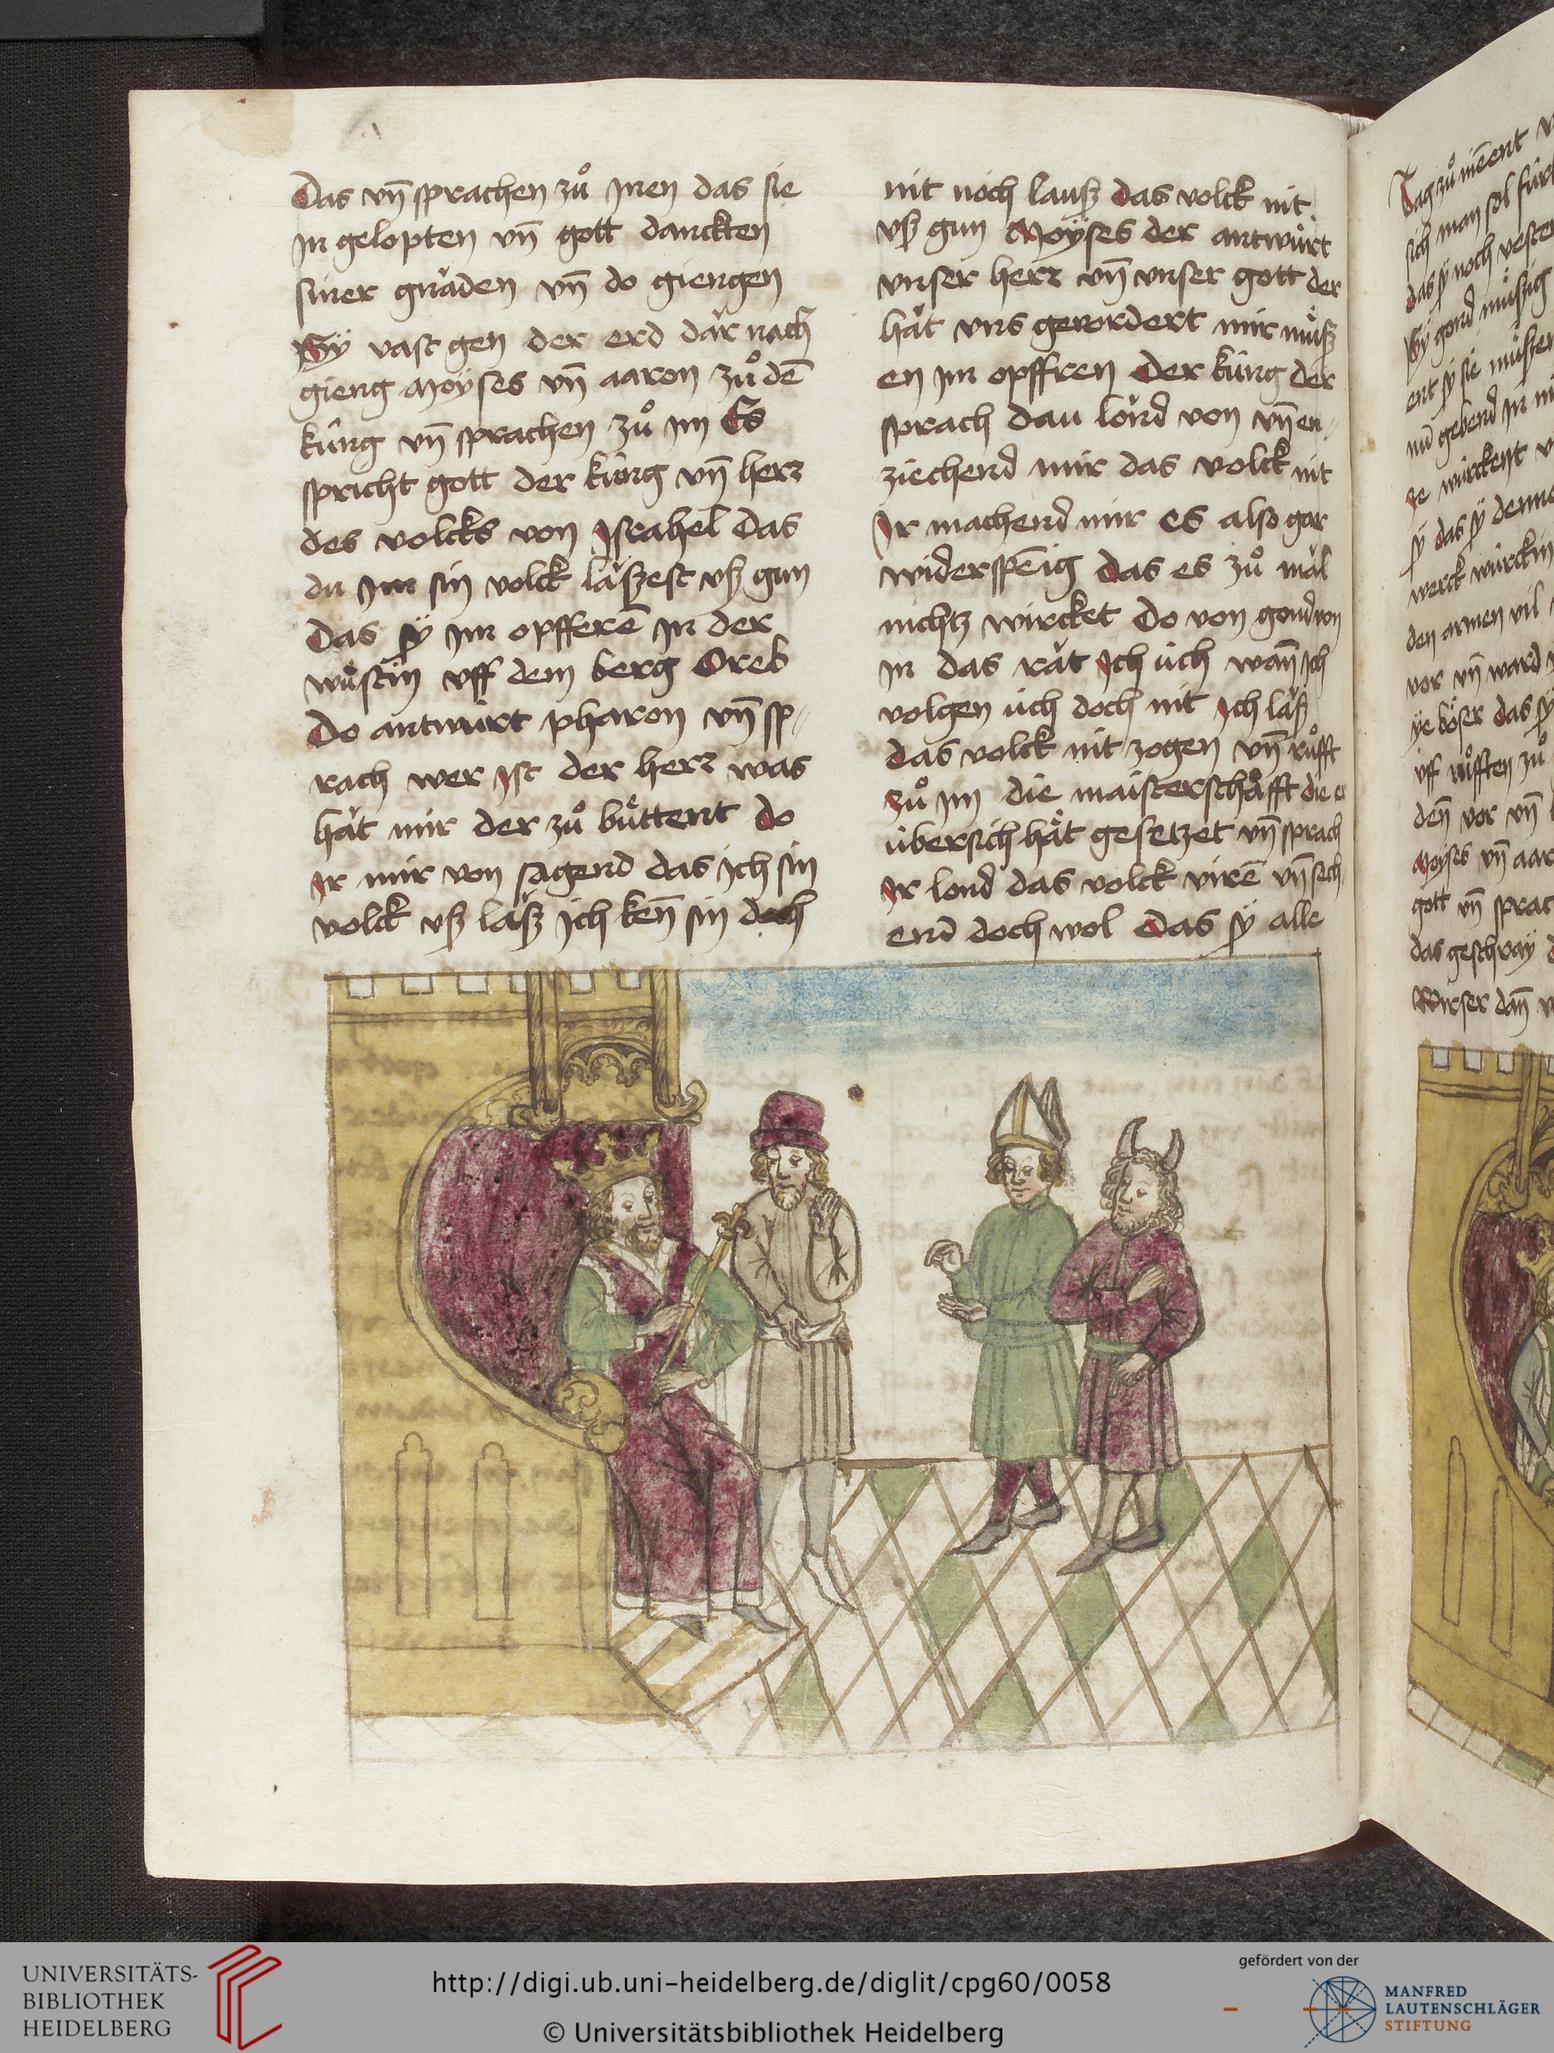 Das vn̄ sprachen zů Inen das sie
In gelopten vn̄ gott danckten
siner gnäden vn̄ do giengen
Sÿ vast gen der erd där nach
gieng Moÿses vn̄ aaron zů dē
küng vn̄ sprachen zů im Es
spricht gott der küng vn̄ herr
des volcks von Israhel Das
du Im sin volck läßest vß gun
Das sÿ im opfferē In der
wüstin vff dem berg Oreb
Do antwürt pharon vn̄ sp-
rach wer Ist der herr was
hät mir der zů büttent do
Ir mir von sagend das ich sin
volck vß läß ich ken̄ sin doch
nit noch lauß das volck nit
vß gun Moÿses der antwürt
vnser herr vn̄ vnser gott der
hät vns gevordert mir müß
en im opffren Der küng der
sprach dau lond von vn̄ en-
ziechend mir das volck nit
Ir machend mir es also gar
widerspēig das es zů mäl
nichtz wircket Do von gond von
in das rät Ich üch wan̄ Ich
volgen üch doch nit Ich läß
das volck nit zogen vn̄ růfft
zů im die maisterschafft die er
übersich hät gesetzet vn̄ sprach
Ir lond das volck virē vn̄ sech
end doch wol Das sÿ alle
Tag zů
sich man sol für
das sÿ noch vester
Sÿ gond müßig
ent sÿ sie müßen
nü gebend in
würckent
sÿ das sÿ denne
werck würckin
den armen vil
vor vn̄ ward
ÿe böser das sÿ
vff růfften zů
den̄ vor vn̄
Moÿses vn̄ aar
gott vn̄ sprac
das geschraÿ
Wirser dan̄
UNIVERSITÄTS-
BIBLIOTHEK
HEIDELBERG
http://digi.ub.uni-heidelberg.de/diglit/cpg60/0058
© Universitätsbibliothek Heidelberg
gefördert von der
MANFRED
LAUTENSCHLÄGER
STIFTUNG